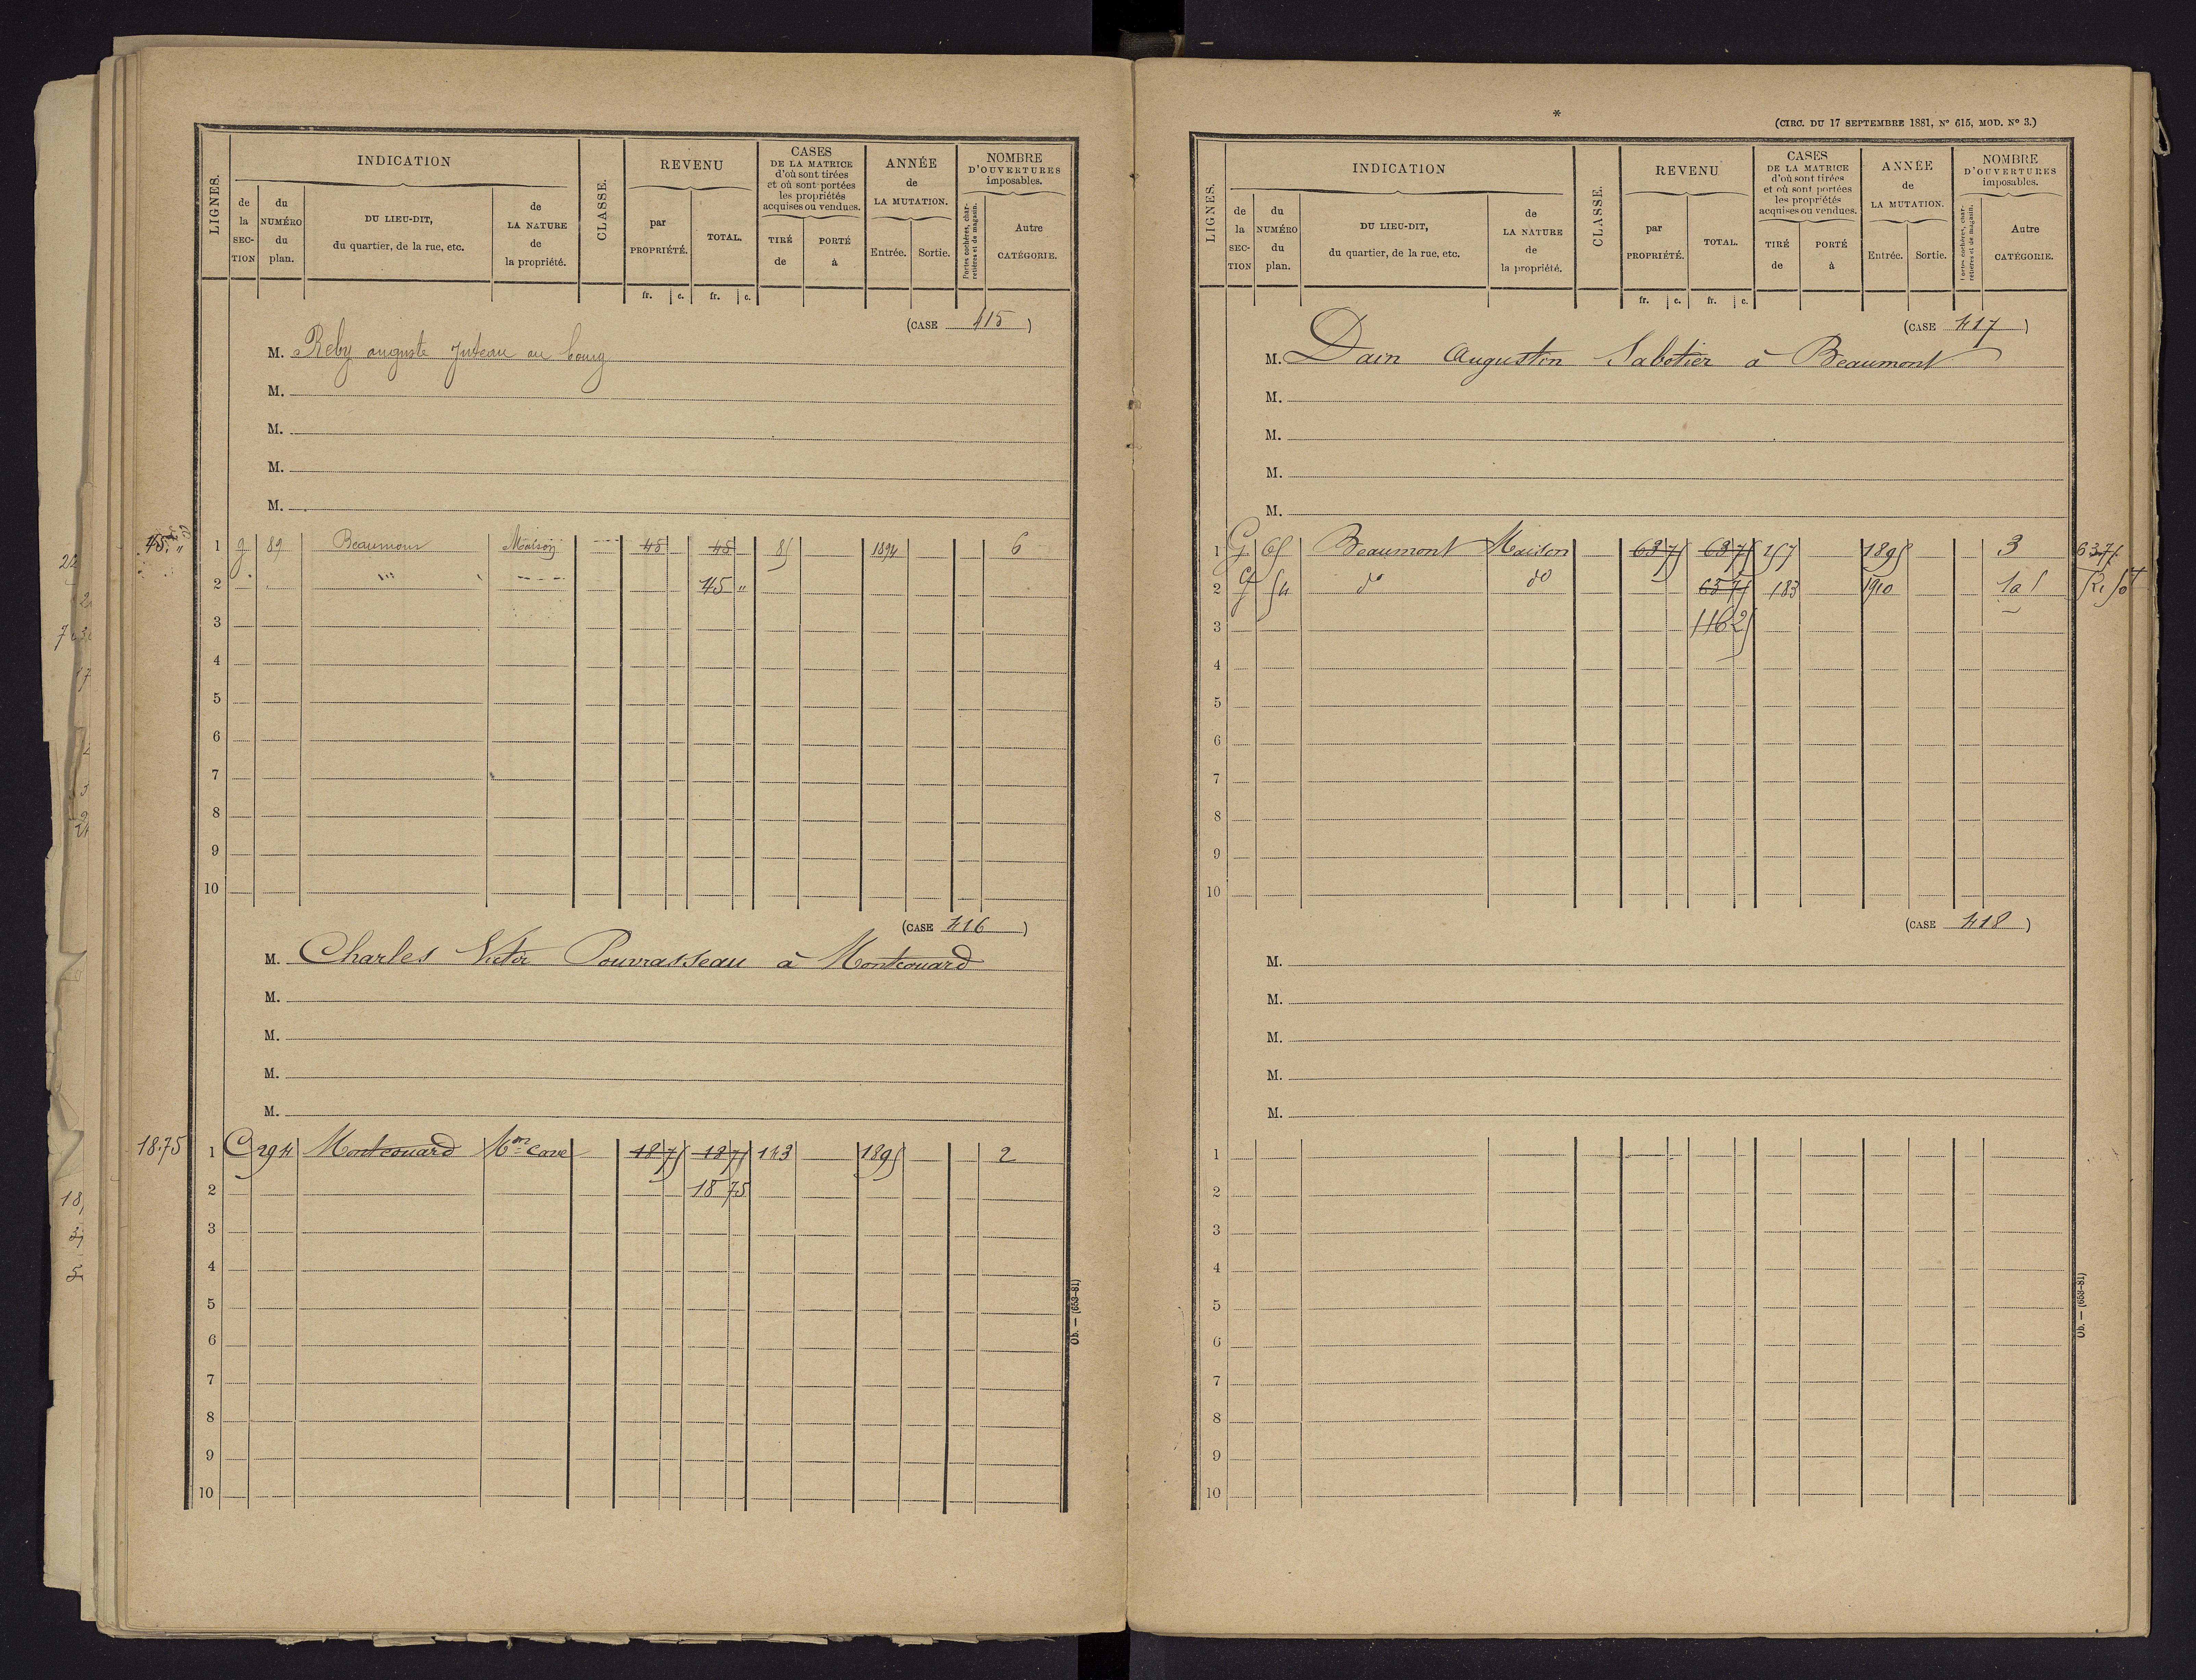 LIGNES.
INDICATION
de la SECTION
du NUMÉRO du plan.
DU LIEU-DIT, du quartier, de la rue, etc.
de LA NATURE de la propriété.
CLASSE.
REVENU
par PROPRIÉTÉ.
TOTAL.
CASES DE LA MATRICE d'où sont tirées et où sont portées les propriétés acquises ou vendues.
TIRÉ de
PORTÉ à
ANNÉE de LA MUTATION.
Entrée.
Sortie.
NOMBRE D'OUVERTURES imposables.
Portes cochères, charretières et de magasin.
Autre CATÉGORIE.
fr. c. fr. c.
(CASE 415)
M. Reby auguste juteau au bourg
M.
M.
M.
M.
45
1 g 89 Beaumont Maison 45 45 85 1894 6
2 45 "
3
4
5
6
7
8
9
10
(CASE 416)
M. Charles Victor Pouvrasseau à Montcouard
M.
M.
M.
M.
18.75
1 C 294 Montcouard Mon Cave 18 75 18 75 143 1895 2
2 18 75
3
4
5
6
7
8
9
10
Ob. — (653-81)
*
(CIRC. DU 17 SEPTEMBRE 1881, No 615, MOD. No 3.)
LIGNES.
INDICATION
de la SECTION
du NUMÉRO du plan.
DU LIEU-DIT, du quartier, de la rue, etc.
de LA NATURE de la propriété.
CLASSE.
REVENU
par PROPRIÉTÉ.
TOTAL.
CASES DE LA MATRICE d'où sont tirées et où sont portées les propriétés acquises ou vendues.
TIRÉ de
PORTÉ à
ANNÉE de LA MUTATION.
Entrée.
Sortie.
NOMBRE D'OUVERTURES imposables.
Portes cochères, charretières et de magasin.
Autre CATÉGORIE.
fr. c. fr. c.
(CASE 417)
M. Dain Augustin Sabotier à Beaumont
M.
M.
M.
M.
1 G 65 Beaumont Maison 63 75 63 75 157 1895 3 63.75
2 G 54 do do 63 75 183 1910
3 116 25
4
5
6
7
8
9
10
(CASE 418)
M.
M.
M.
M.
M.
1
2
3
4
5
6
7
8
9
10
Ob. — (653-81)